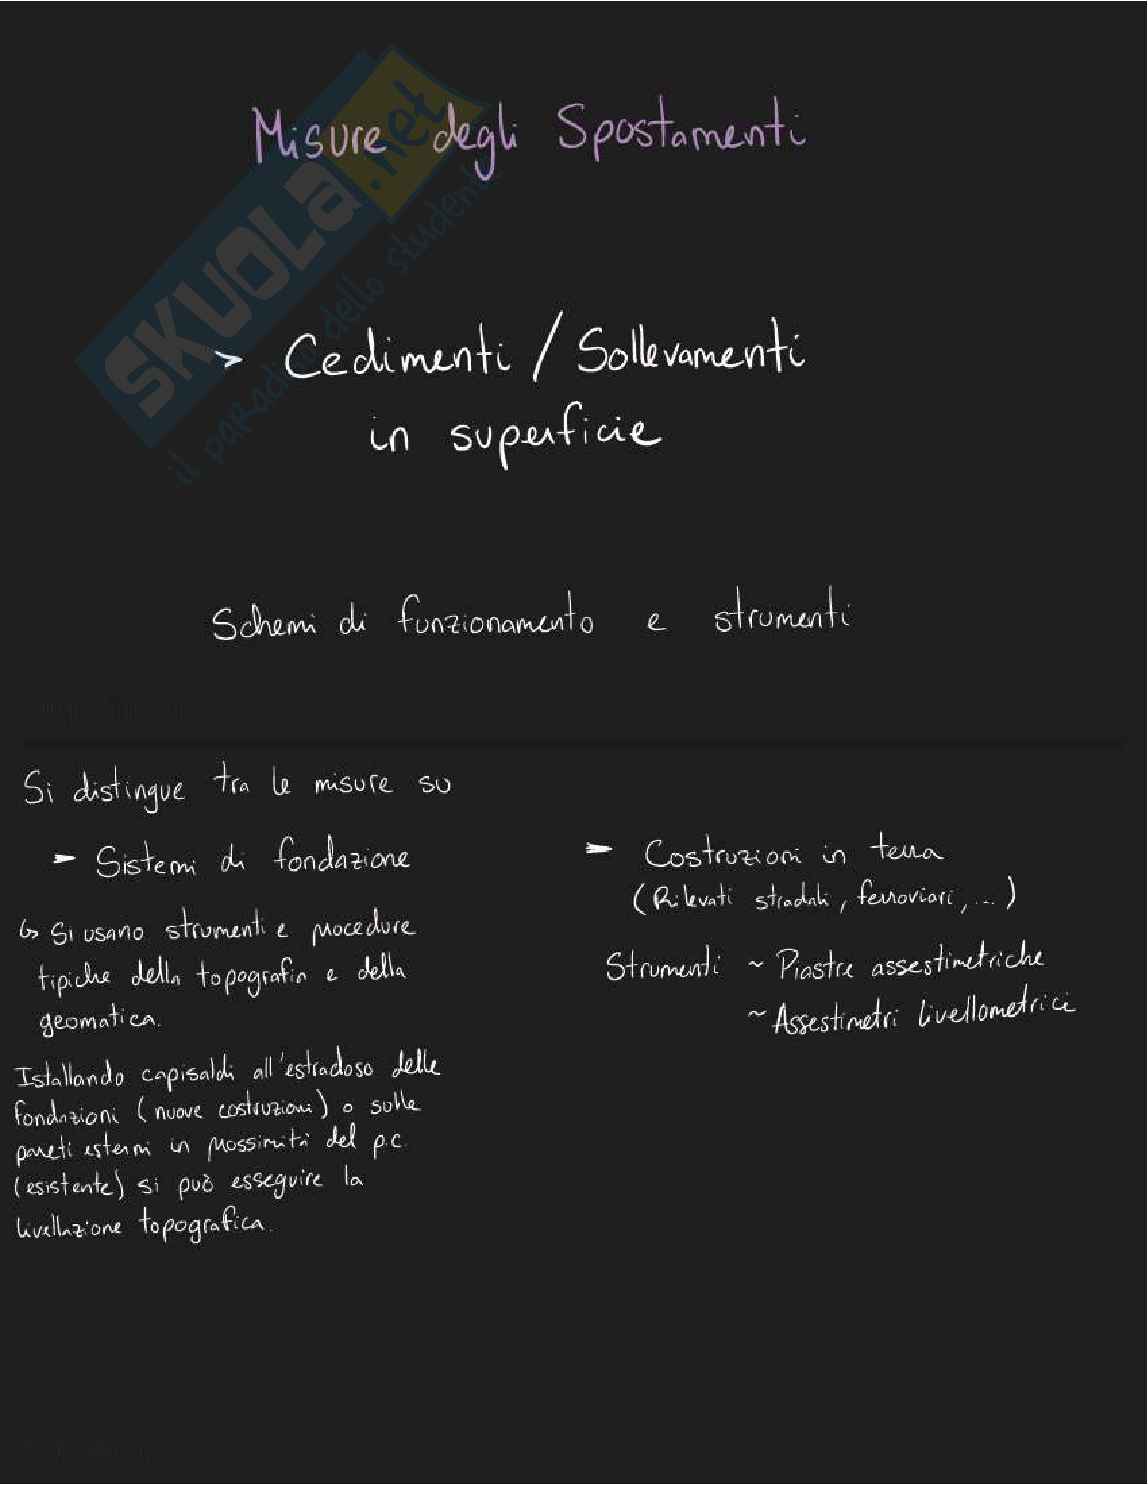 Misure degli Spostamenti
SKUOLA.net
il paradiso dello studente
> Cedimenti / Sollevamenti
in superficie
Schemi di funzionamento e strumenti
Si distingue tra le misure su
- Sistemi di fondazione
↳ Si usano strumenti e procedure
tipiche della topografia e della
geomatica.
Istallando capisaldi all'estradoso delle
fondazioni (nuove costruzioni) o sulle
pareti esterni in prossimità del p.c.
(esistente) si può eseguire la
livellazione topografica.
- Costruzioni in terra
(Rilevati stradali, ferroviari, ...)
Strumenti ~ Piastre assestimetriche
~ Assestimetri livellometrici